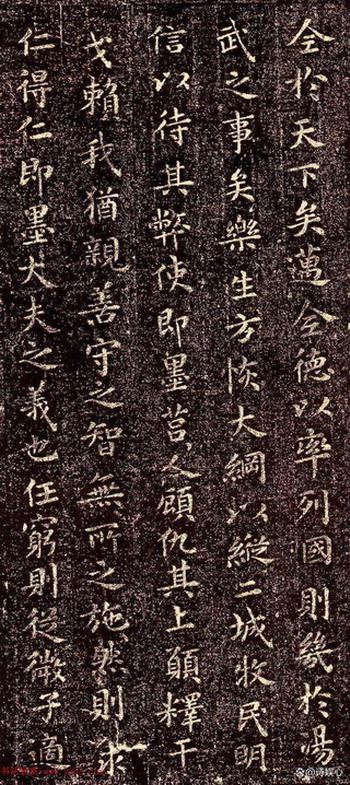 全於天下矣邁全德以率列國則幾於湯
武之事矣樂生方恢大綱以縱二城收民明
信以待其弊使即墨莒人顧仇其上願釋干
戈賴我猶親善守之智無所之施然則求
仁得仁即墨大夫之義也任窮則從微子適
@诗娱心